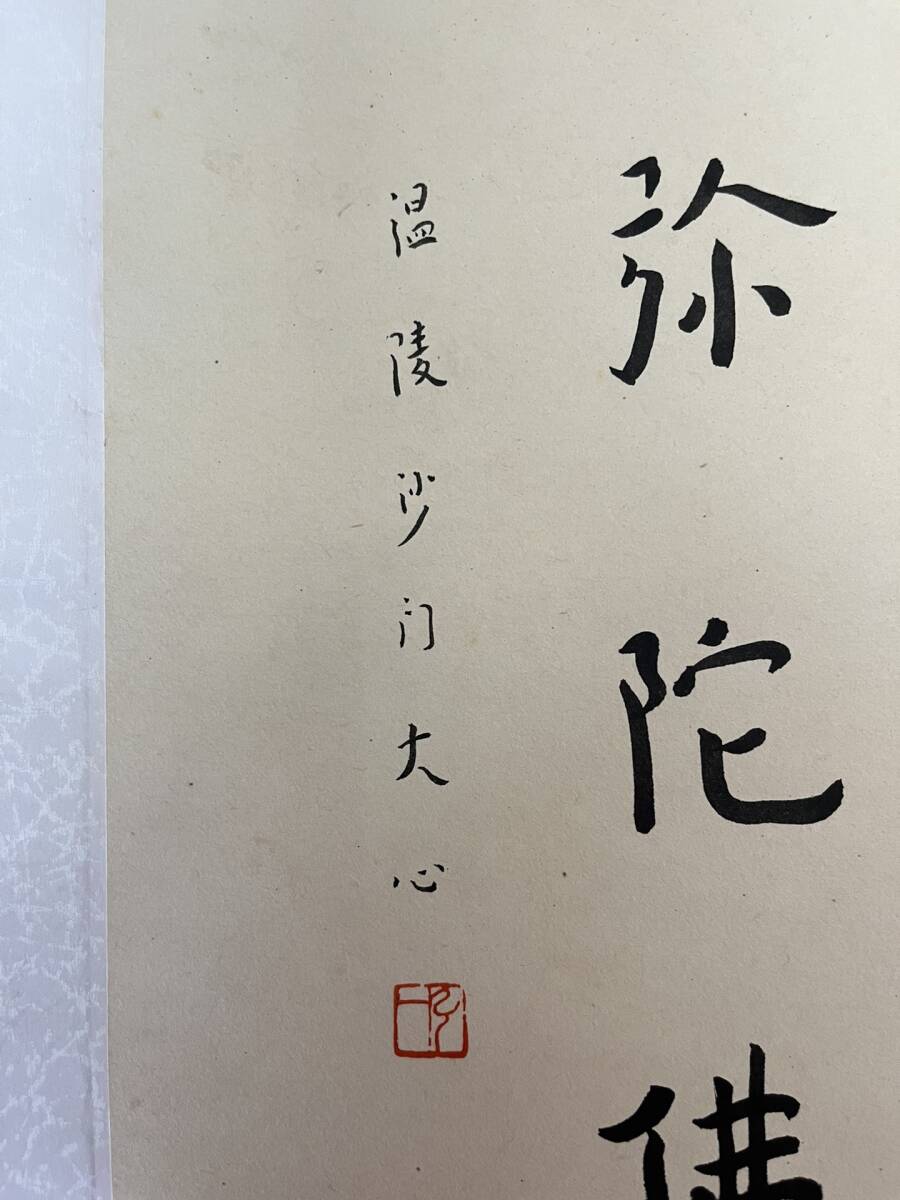 弥陀佛
温陵沙门大心